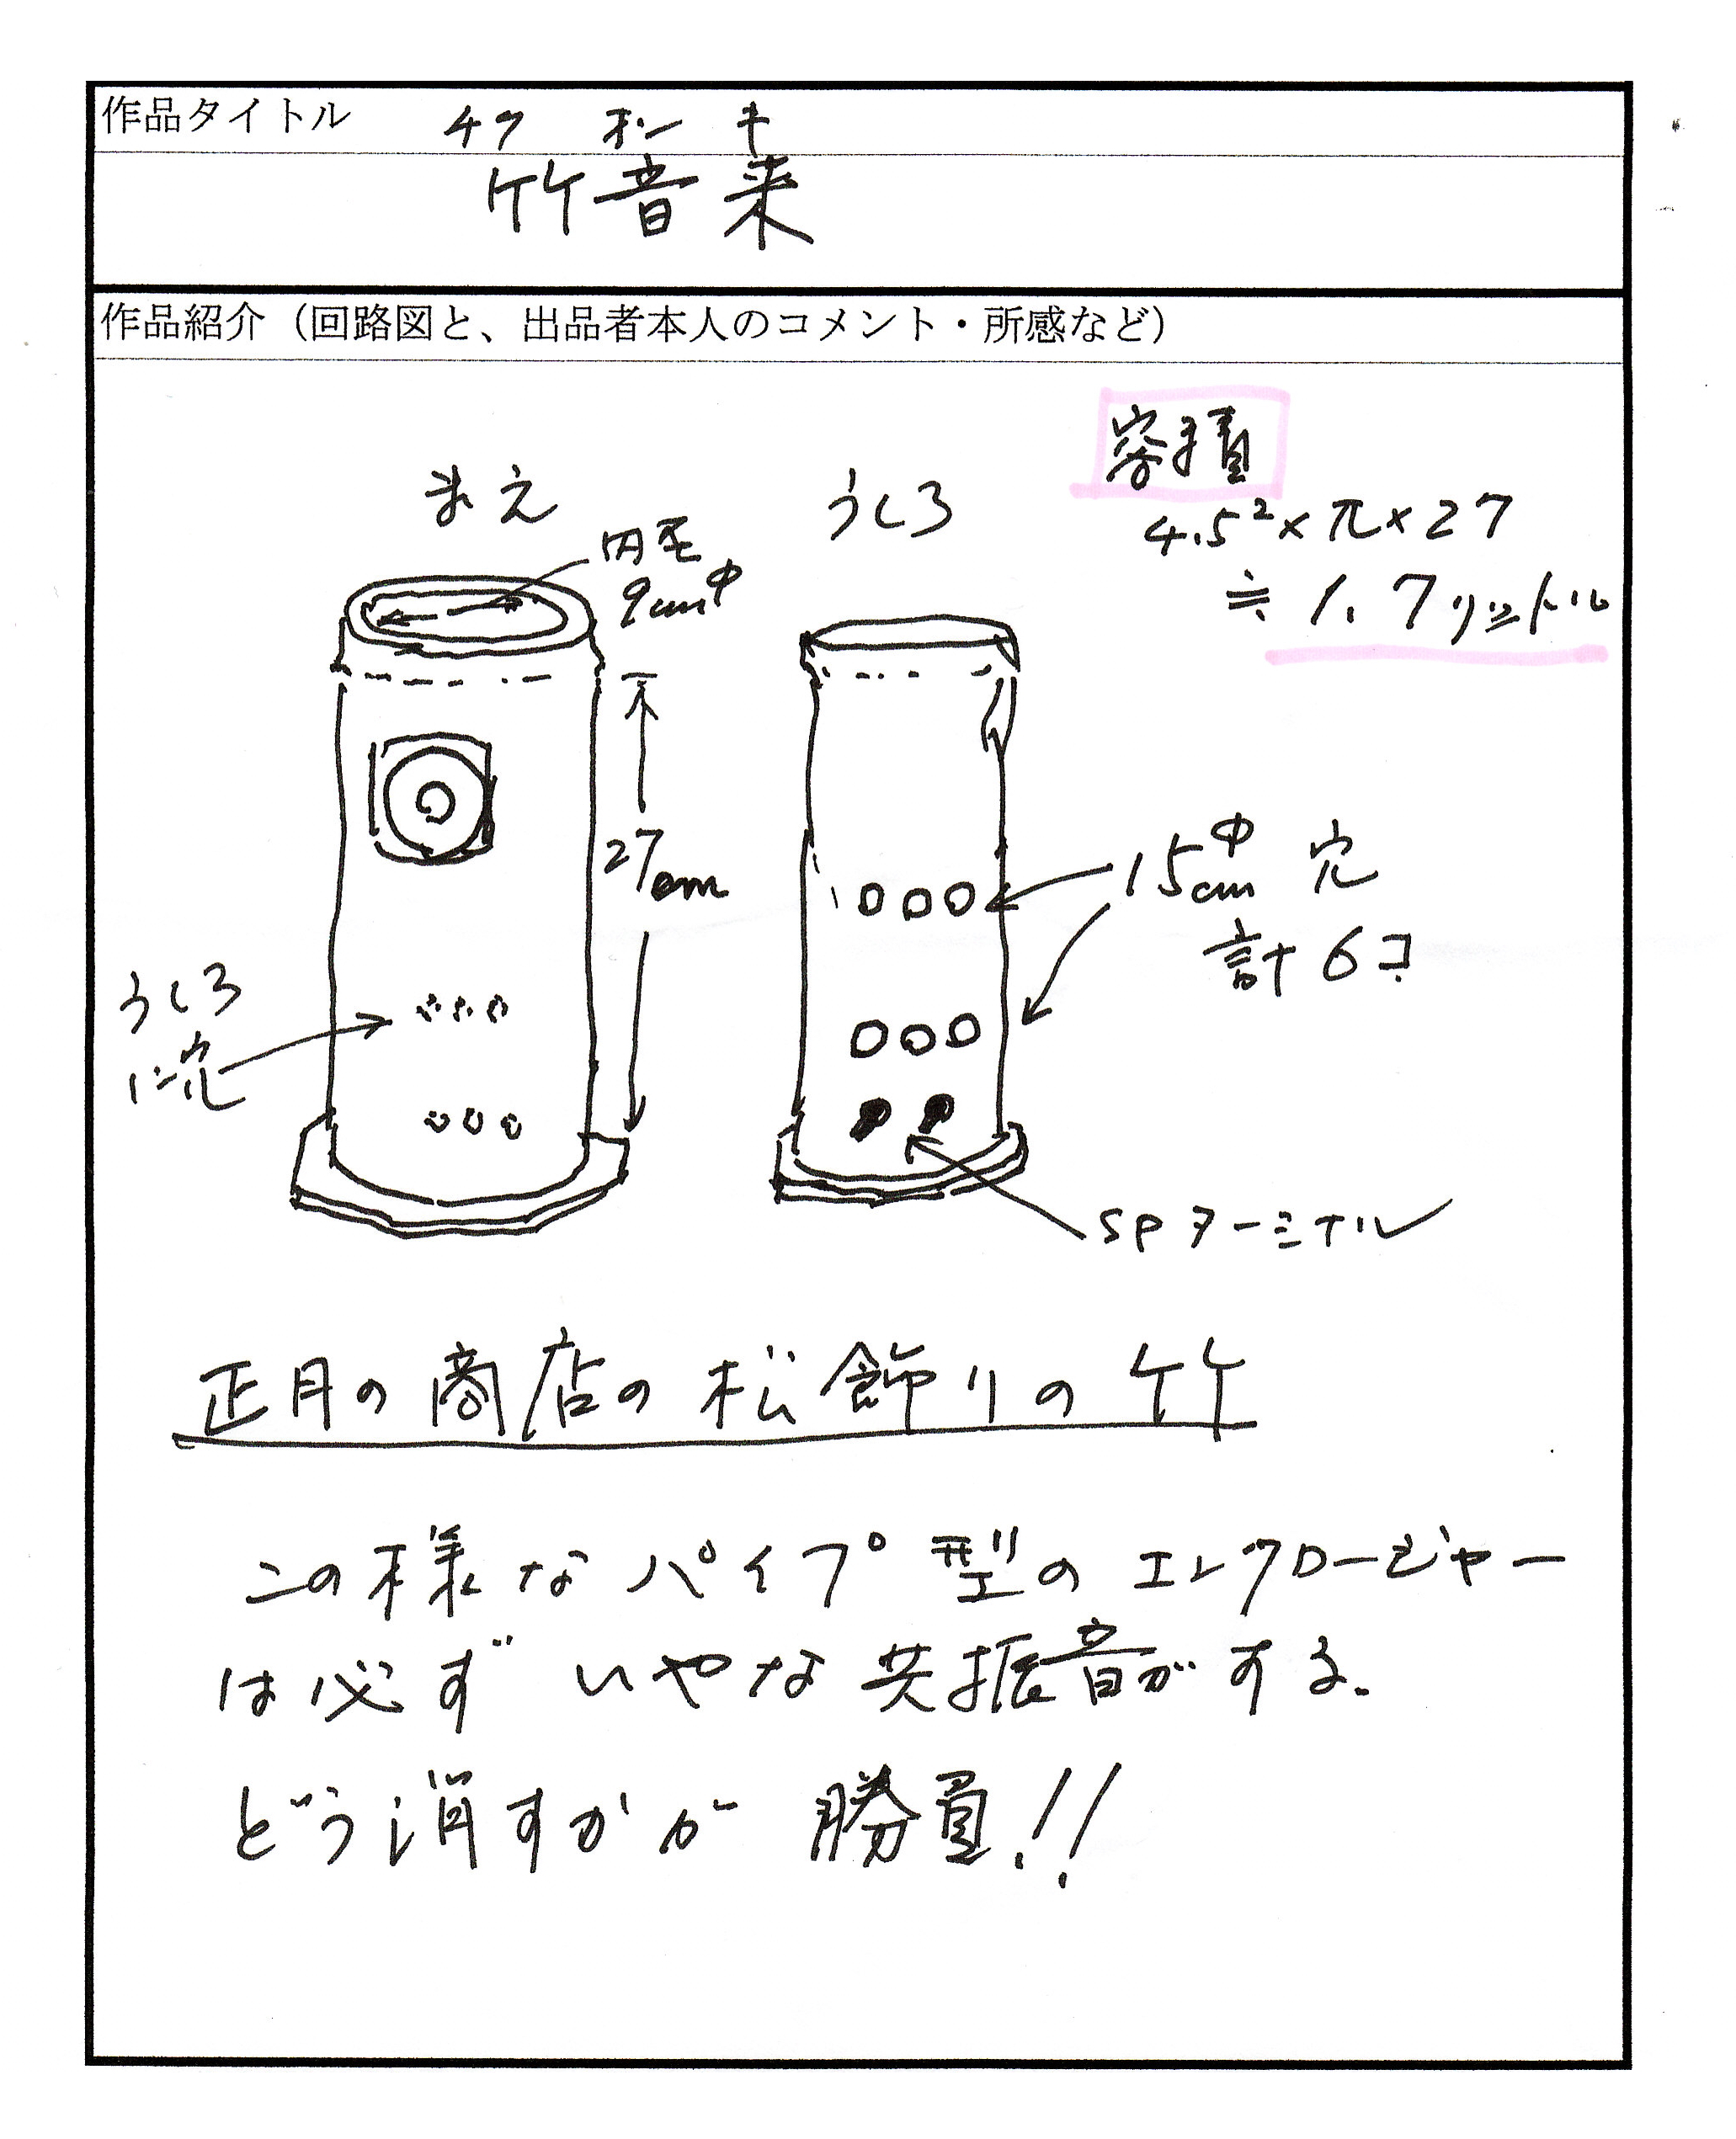 作品タイトル
チク オン キ
竹音来
作品紹介（回路図と、出品者本人のコメント・所感など）
容積
4.5²×π×27
≒1.7リットル
まえ
内径
9cmφ
27cm
うしろ
に穴
うしろ
15cmφ 穴
計6コ
SPターミナル
正月の商店の松飾りの竹
この様なパイプ型のエレクロージャー
は必ずいやな共振音がする.
どう消すかが勝負!!